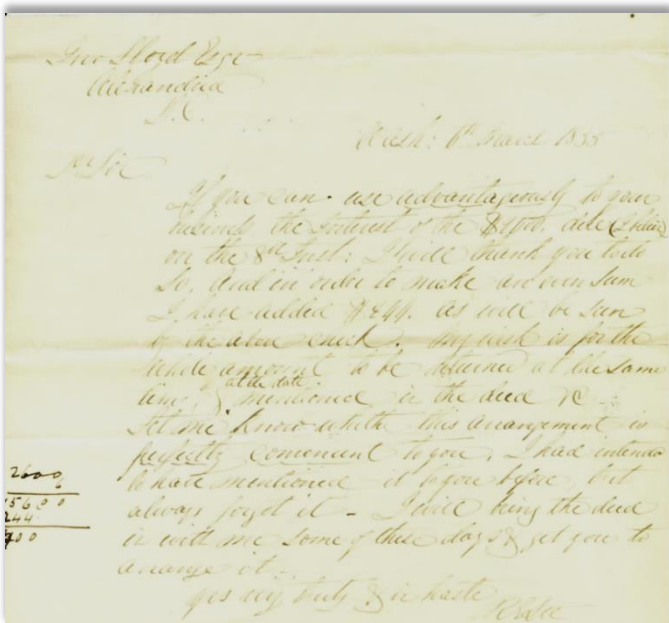 Jno Lloyd Esqr
Alexandria
D.C.
Wash: 6th March 1835
Dr Sir
If you can use advantageously to your
business the interest of the $2600. due (I believe)
on the 8th Inst: I will thank you to do
So, and in order to make an even sum
I have added $244. as will be seen
by the above check. My wish is for the
whole amount to be returned at the same
time, & at the date mentioned in the deed &c
Let me know whether this arrangement is
perfectly convenient to you. I had intended
to have mentioned it to you before, but
always forgot it - I will bring the deed
in with me some of these days & get you to
arrange it -
yrs very truly & in haste
2600
6
15600
244
400